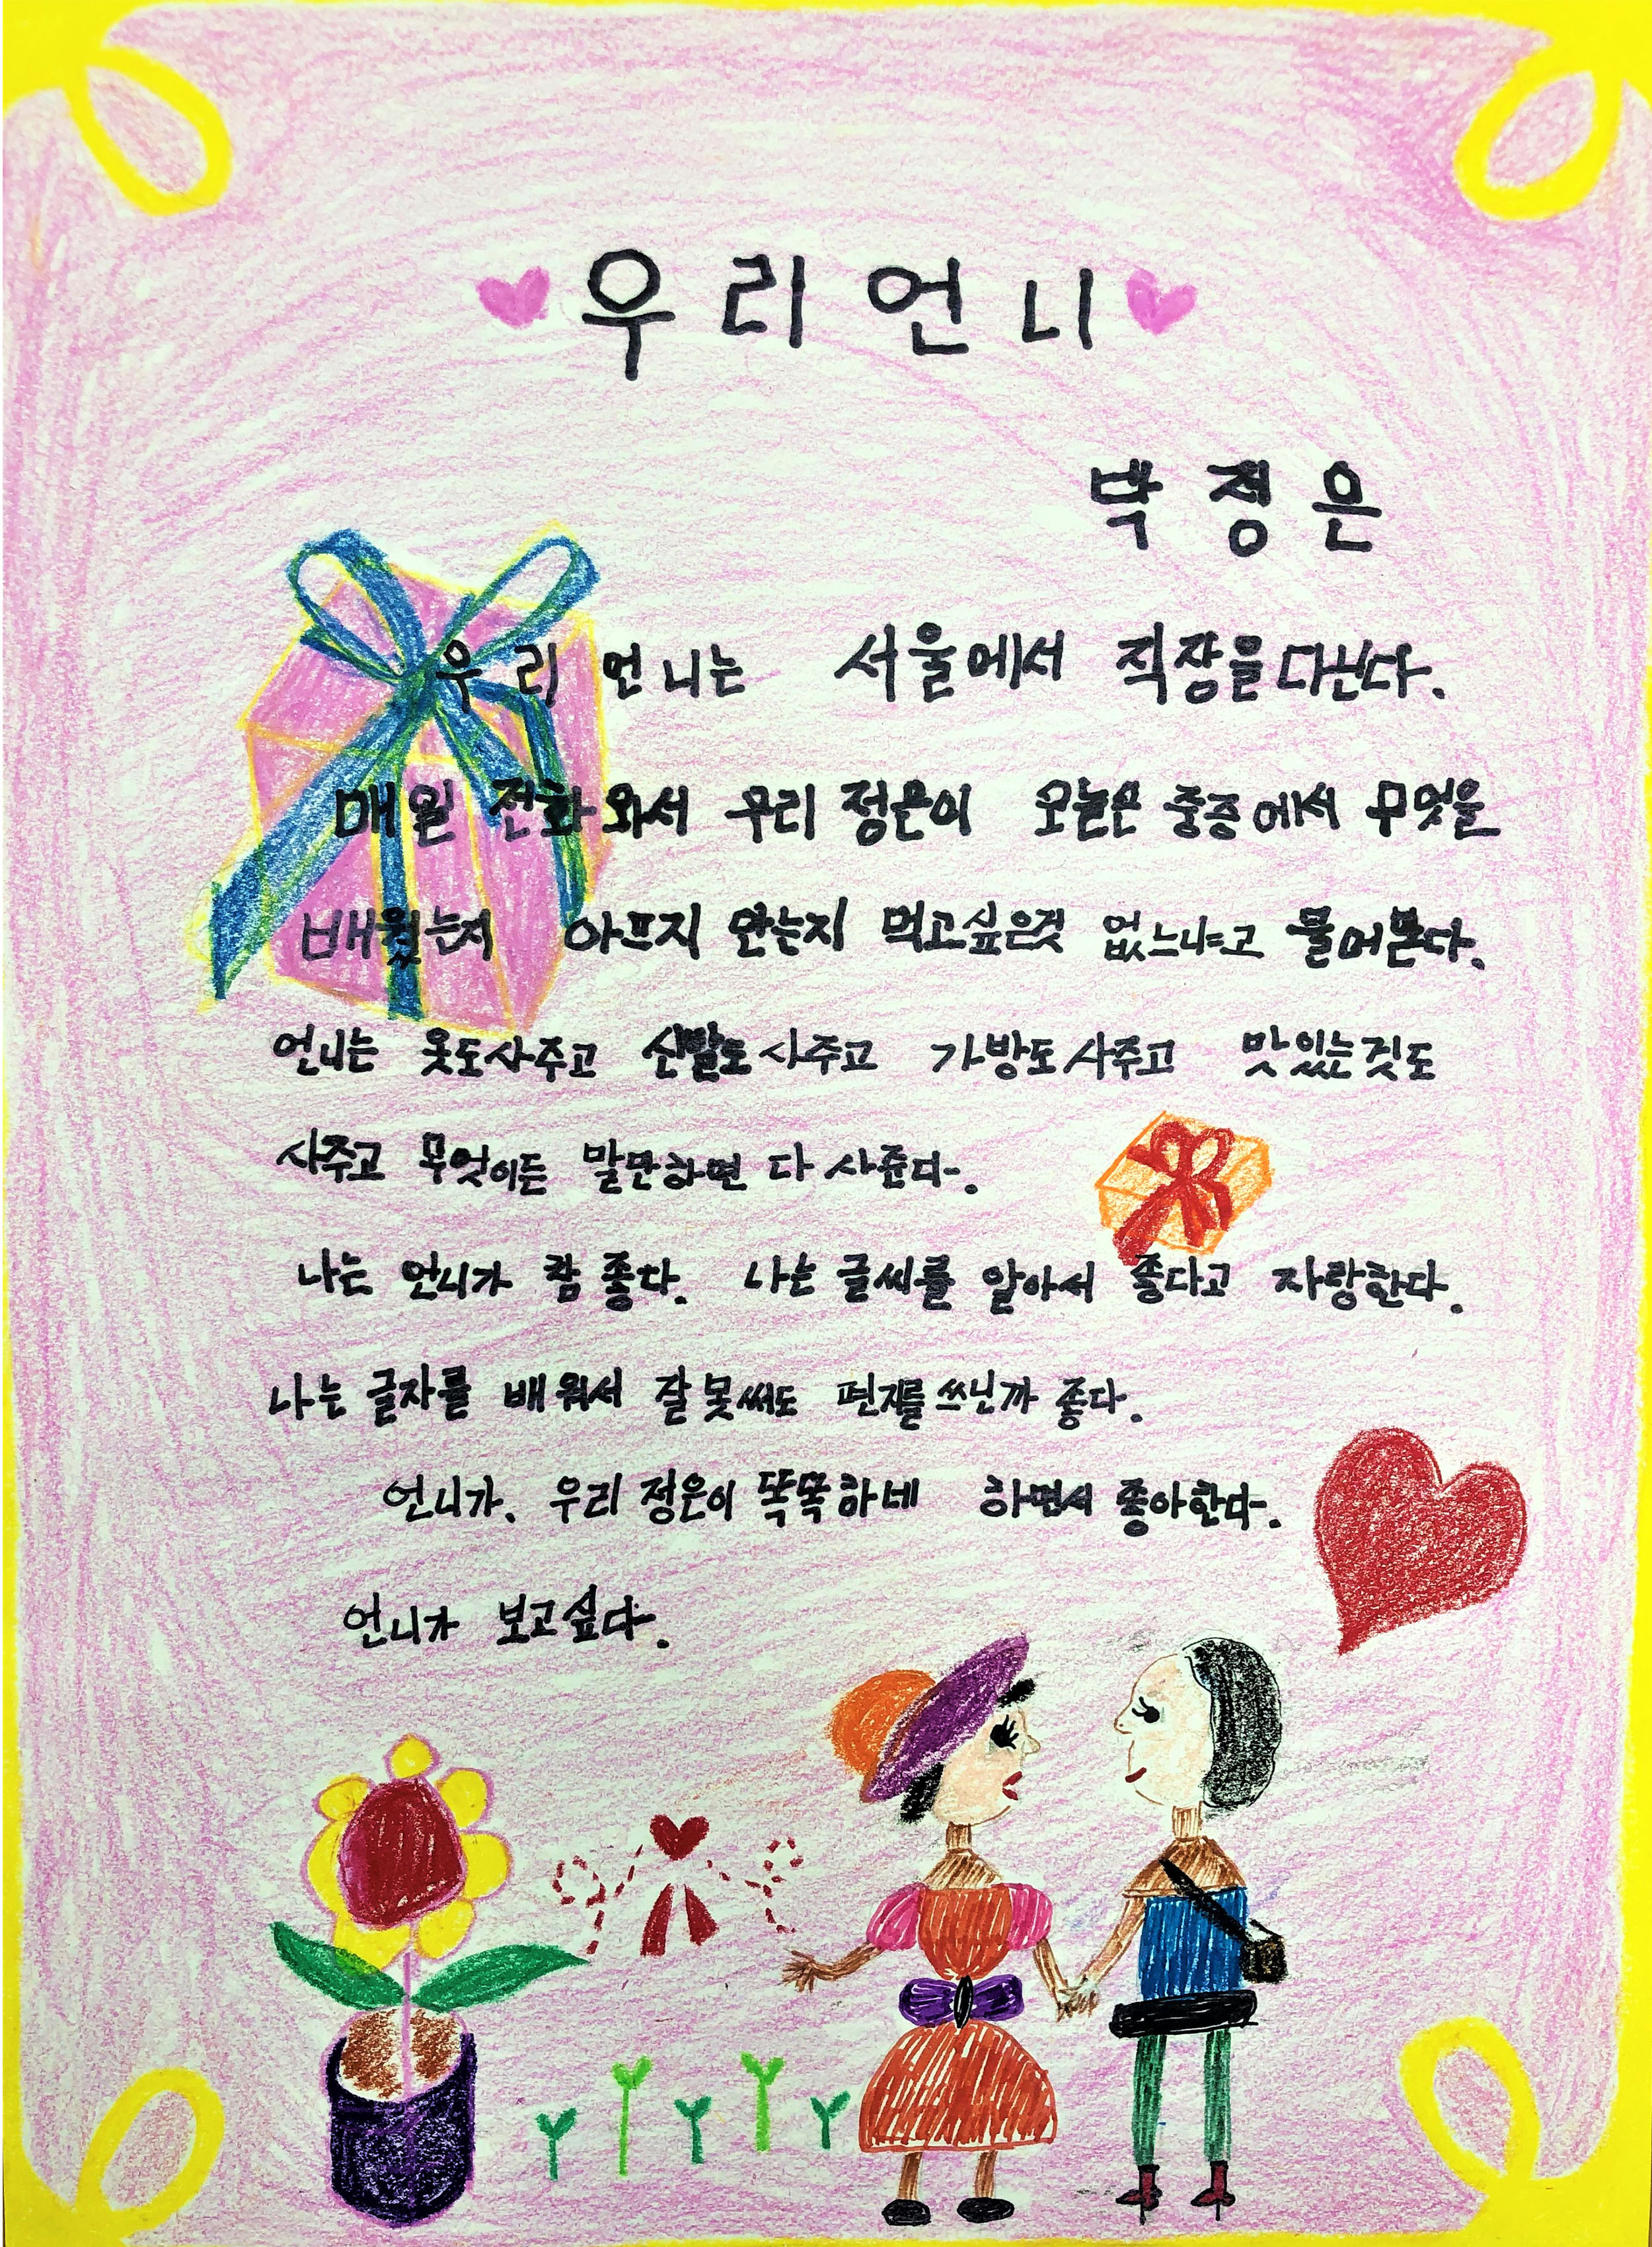 우리언니
박정은
우리 언니는 서울에서 직장을 다닌다.
매일 전화와서 우리 정은이 오늘은 중증에서 무엇을
배웠는지 아프지 안는지 먹고싶은것 없느냐고 물어본다.
언니는 옷도사주고 신발도 사주고 가방도 사주고 맛있는것도
사주고 무엇이든 말만하면 다 사준다.
나는 언니가 참 좋다. 나는 글씨를 알아서 좋다고 자랑한다.
나는 글자를 배워서 잘 못써도 편지를 쓰닌까 좋다.
언니가. 우리 정은이 똑똑하네 하면서 좋아한다.
언니가 보고싶다.